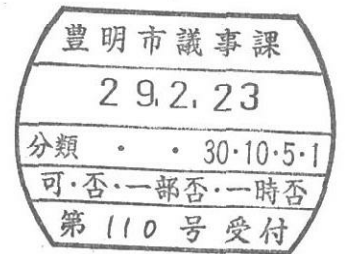 豊明市議事課
29.2.23
分類 ・ ・ 30・10・5・1
可・否・一部否・一時否
第110号受付